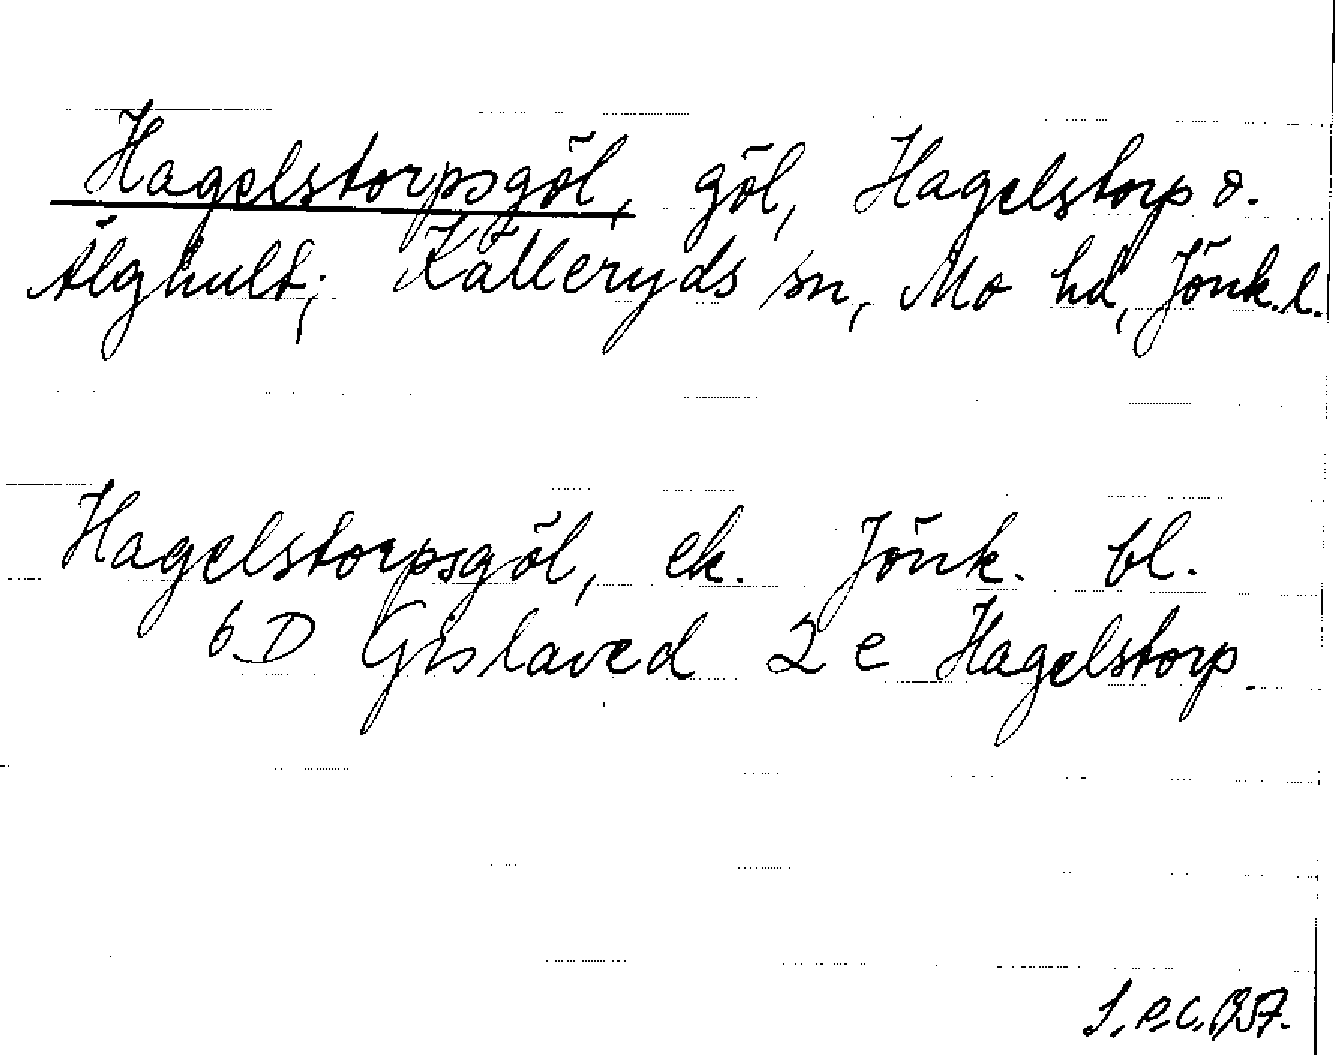 Hagelstorpsgöl, göl, Hagelstorp o.
Älghult; Källeryds sn, Mo hd, Jönk.l.
Hagelstorpsgöl, ek. Jönk. bl.
6 D Gislaved 2 e Hagelstorp.
1957.